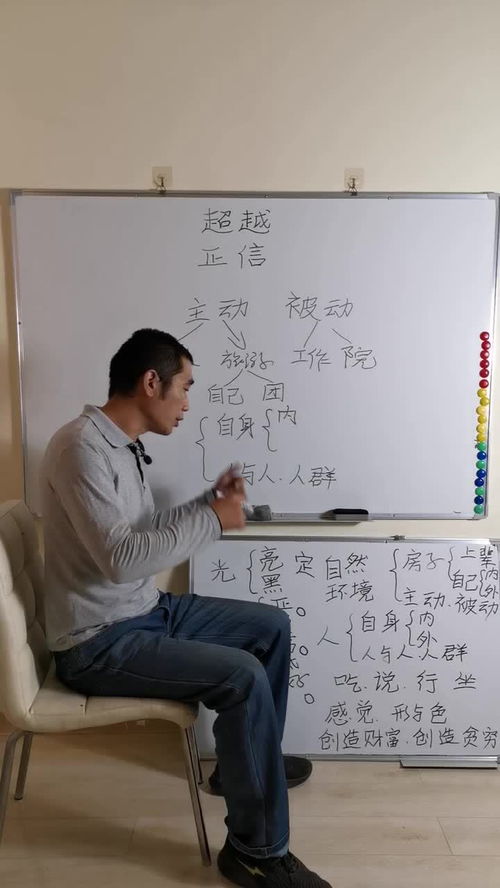 超越
正信
主动 被动
旅游 工作 院
自己 团
自身 内
与人.人群
光 亮 定 自然 房子 上辈
黑 环境 自己 内
外
正。 主动.被动
人 自身 内
外
人与人.人群
吃.说.行 坐
感觉.形与色
创造财富.创造贫穷